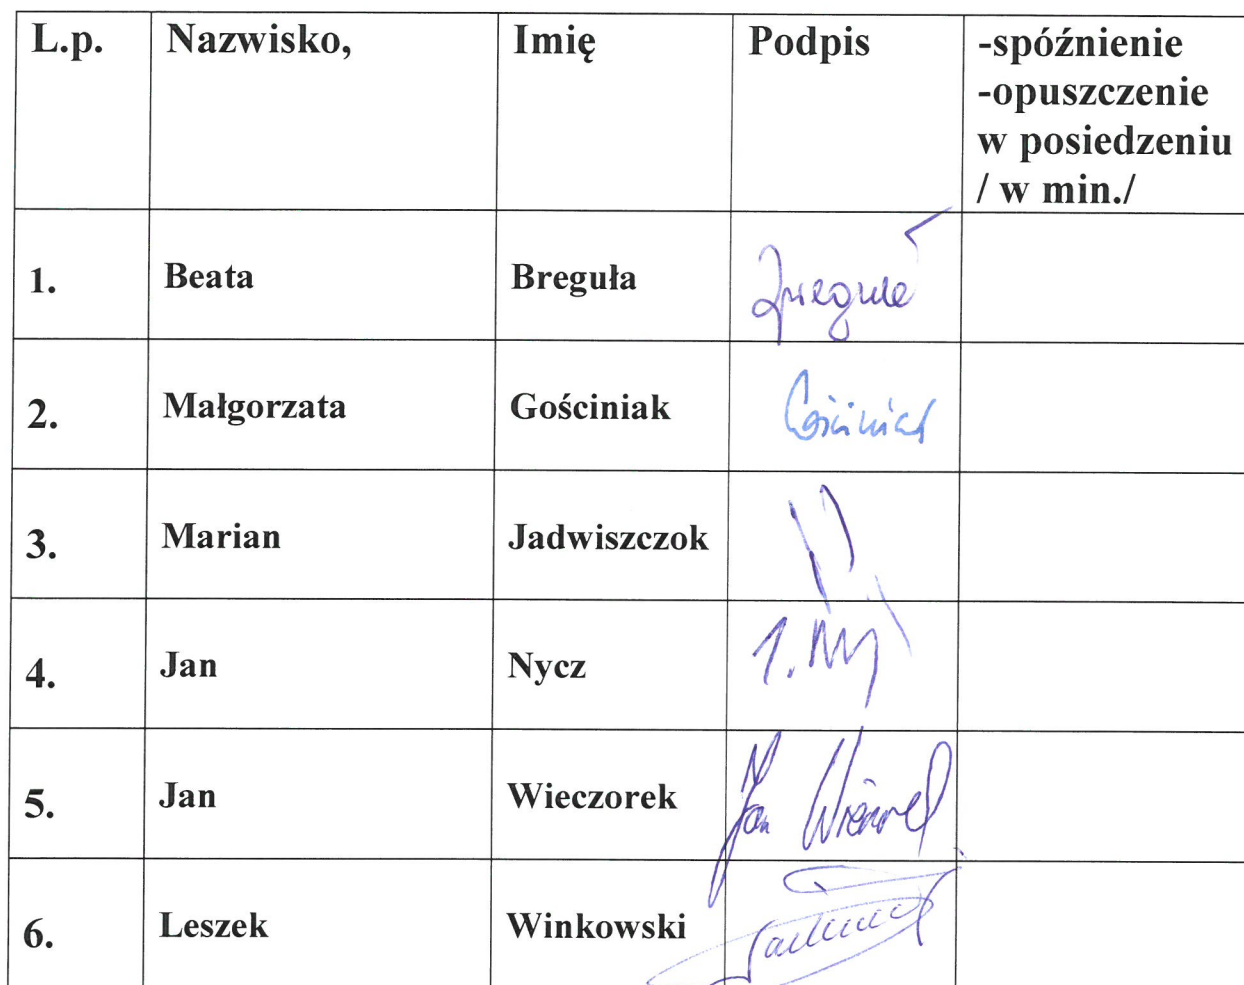 L.p. Nazwisko, Imię Podpis -spóźnienie
-opuszczenie
w posiedzeniu
/ w min./
1. Beata Breguła
2. Małgorzata Gościniak Gościniak
3. Marian Jadwiszczok
4. Jan Nycz J. Ny
5. Jan Wieczorek Jan Wieczorek
6. Leszek Winkowski